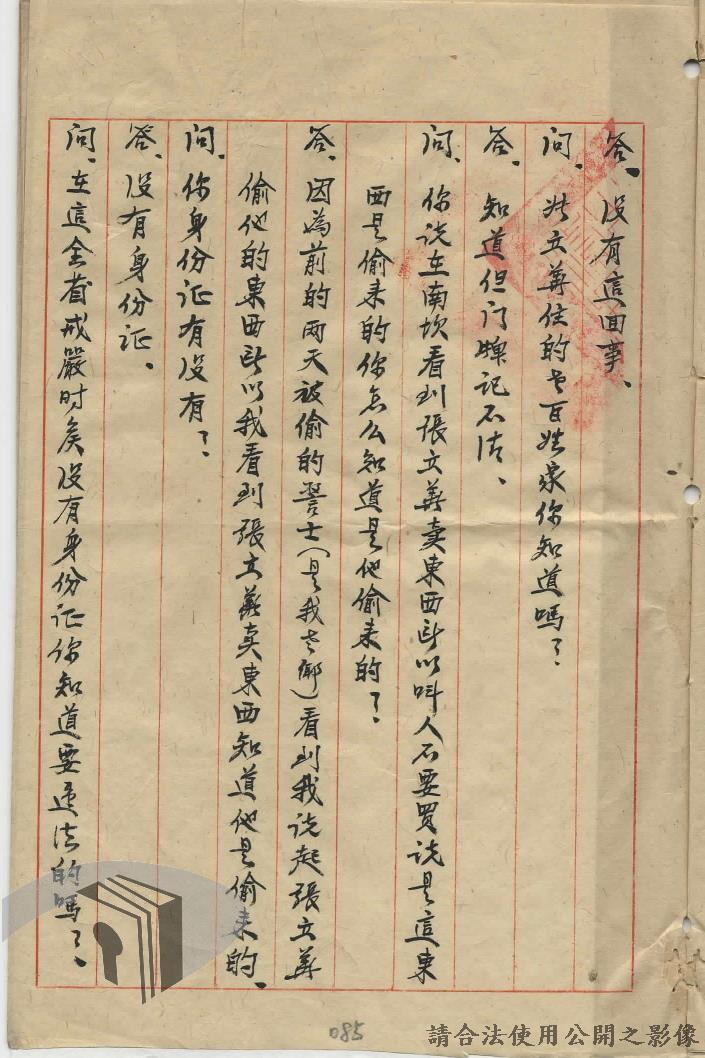 答、没有這回事、
问、张立華住的老百姓家你知道嗎？
答、知道但门牌记不清、
问、你说在南坎看到張立華卖東西所以叫人不要買说是這東
西是偷来的你怎么知道是他偷来的？
答、因為前的两天被偷的警士（是我老鄉）看到我说起張立華
偷他的東西所以我看到張立華卖東西知道他是偷来的、
问、你身份证有没有？
答、没有身份证、
问、在這全省戒嚴时矣没有身份证你知道要违法的嗎？、
085
請合法使用公開之影像